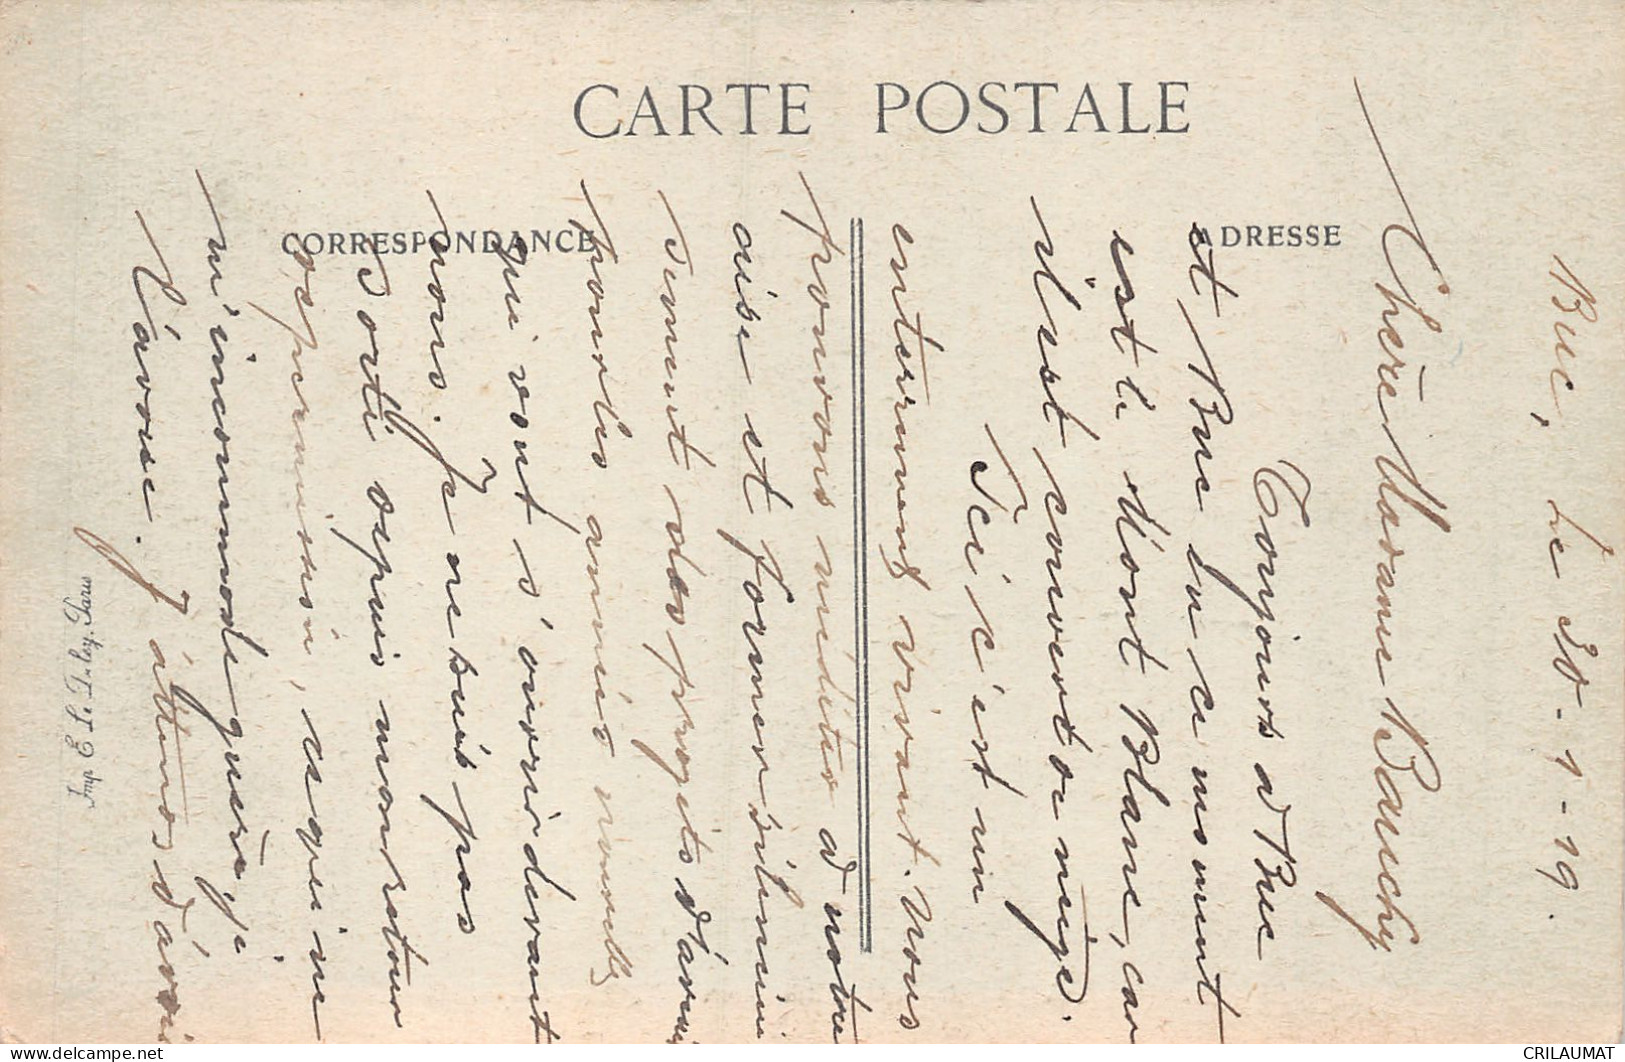 CARTE POSTALE
CORRESPONDANCE
ADRESSE
Buc, Le 30-1-19.
Chère Madame Bauchy
Toujours à Buc
et Buc en ce moment
est le Mont Blanc, car
il est couvert de neige.
Ici c'est un
enterrement vivant. Nous
pouvons méditer à notre
aise et former silencieu
sement des projets d'avenir
pour les années nouvelles
qui vont s'ouvrir devant
nous. Je ne suis pas
sorti depuis mon retour
de permission, ce qui ne
m'incommode guère je
l'avoue. J'attends d'avoir
Imp. E. Le Deley, Paris
CRILAUMAT